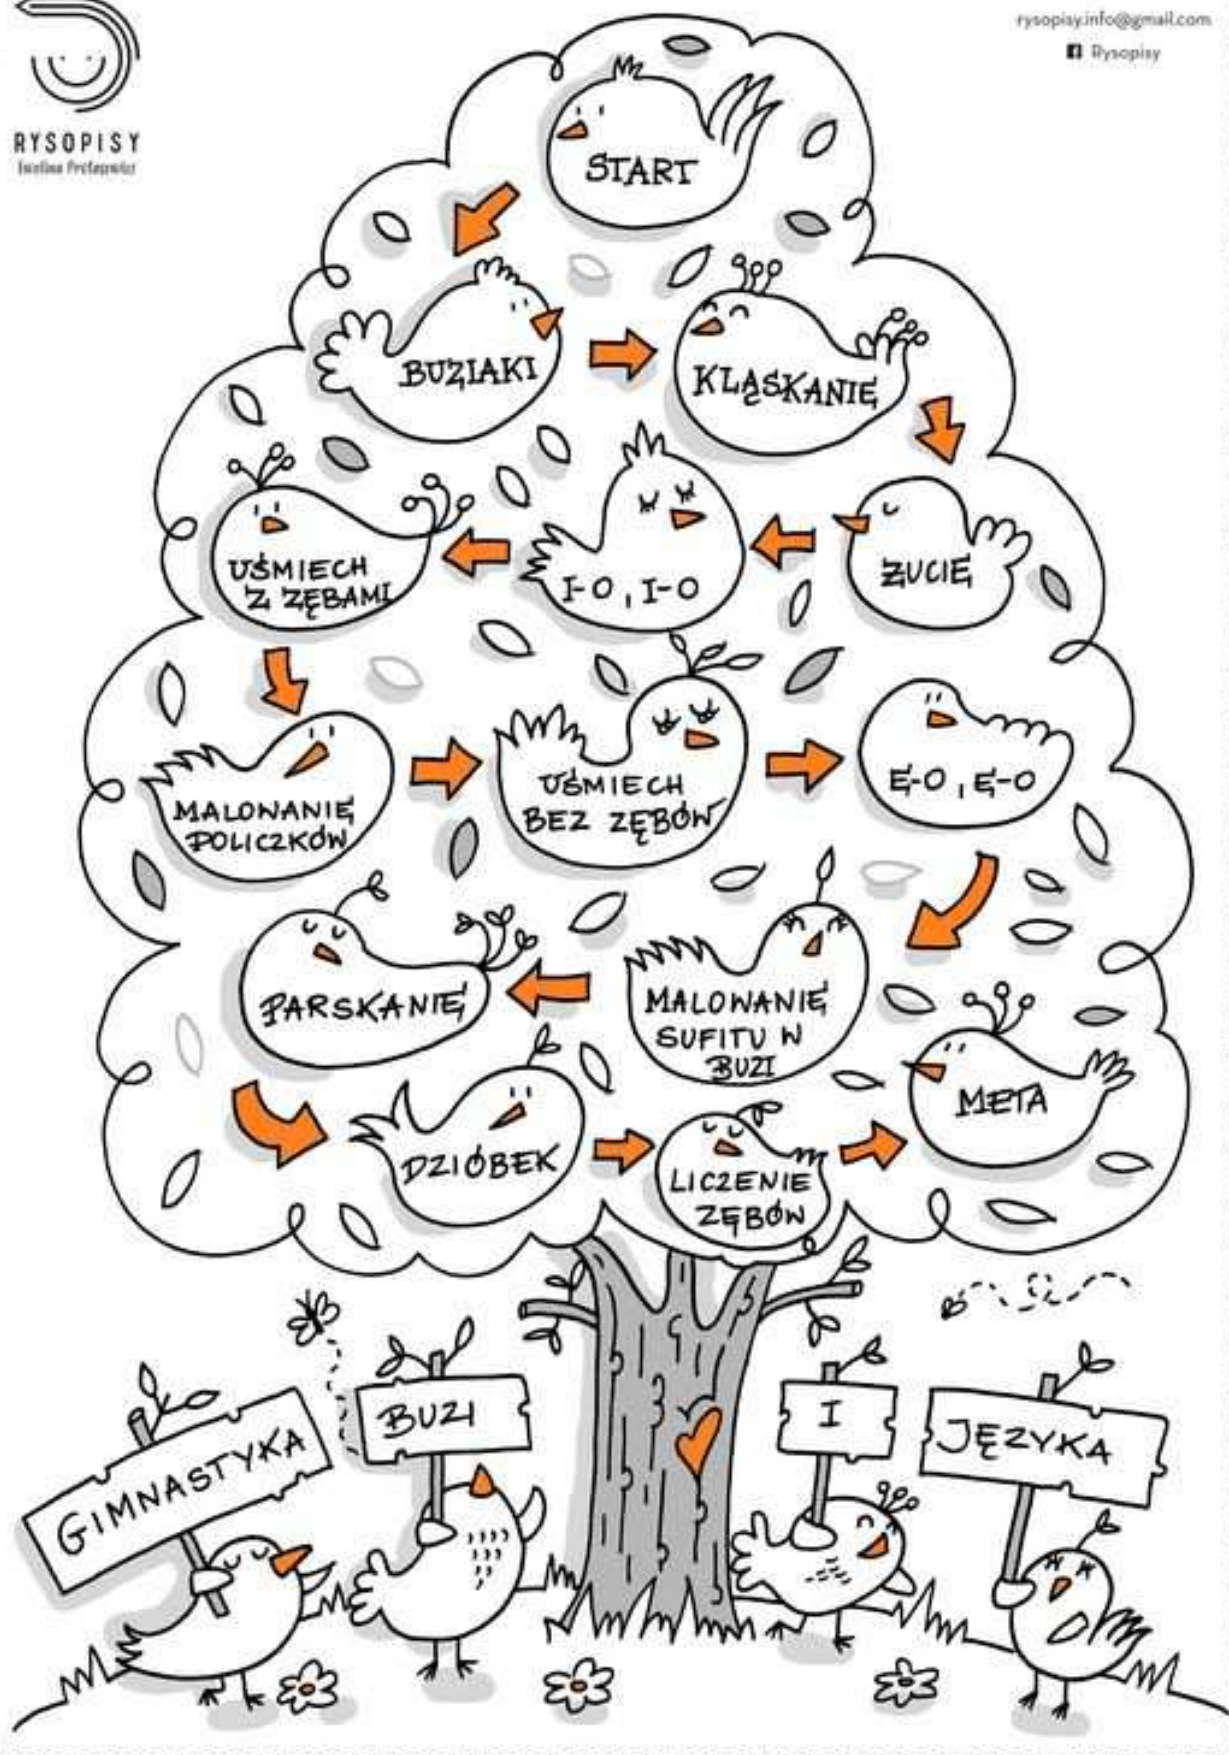 RYSOPISY
rysopisy.info@gmail.com
Rysopisy
START
BUZIAKI
KLĄSKANIE
ŻUCIE
I-O, I-O
UŚMIECH
Z ZĘBAMI
MALOWANIE
POLICZKÓW
UŚMIECH
BEZ ZĘBÓW
E-O, E-O
MALOWANIE
SUFITU W
BUZI
PARSKANIE
DZIÓBEK
LICZENIE
ZĘBÓW
META
GIMNASTYKA
BUZI
I
JĘZYKA